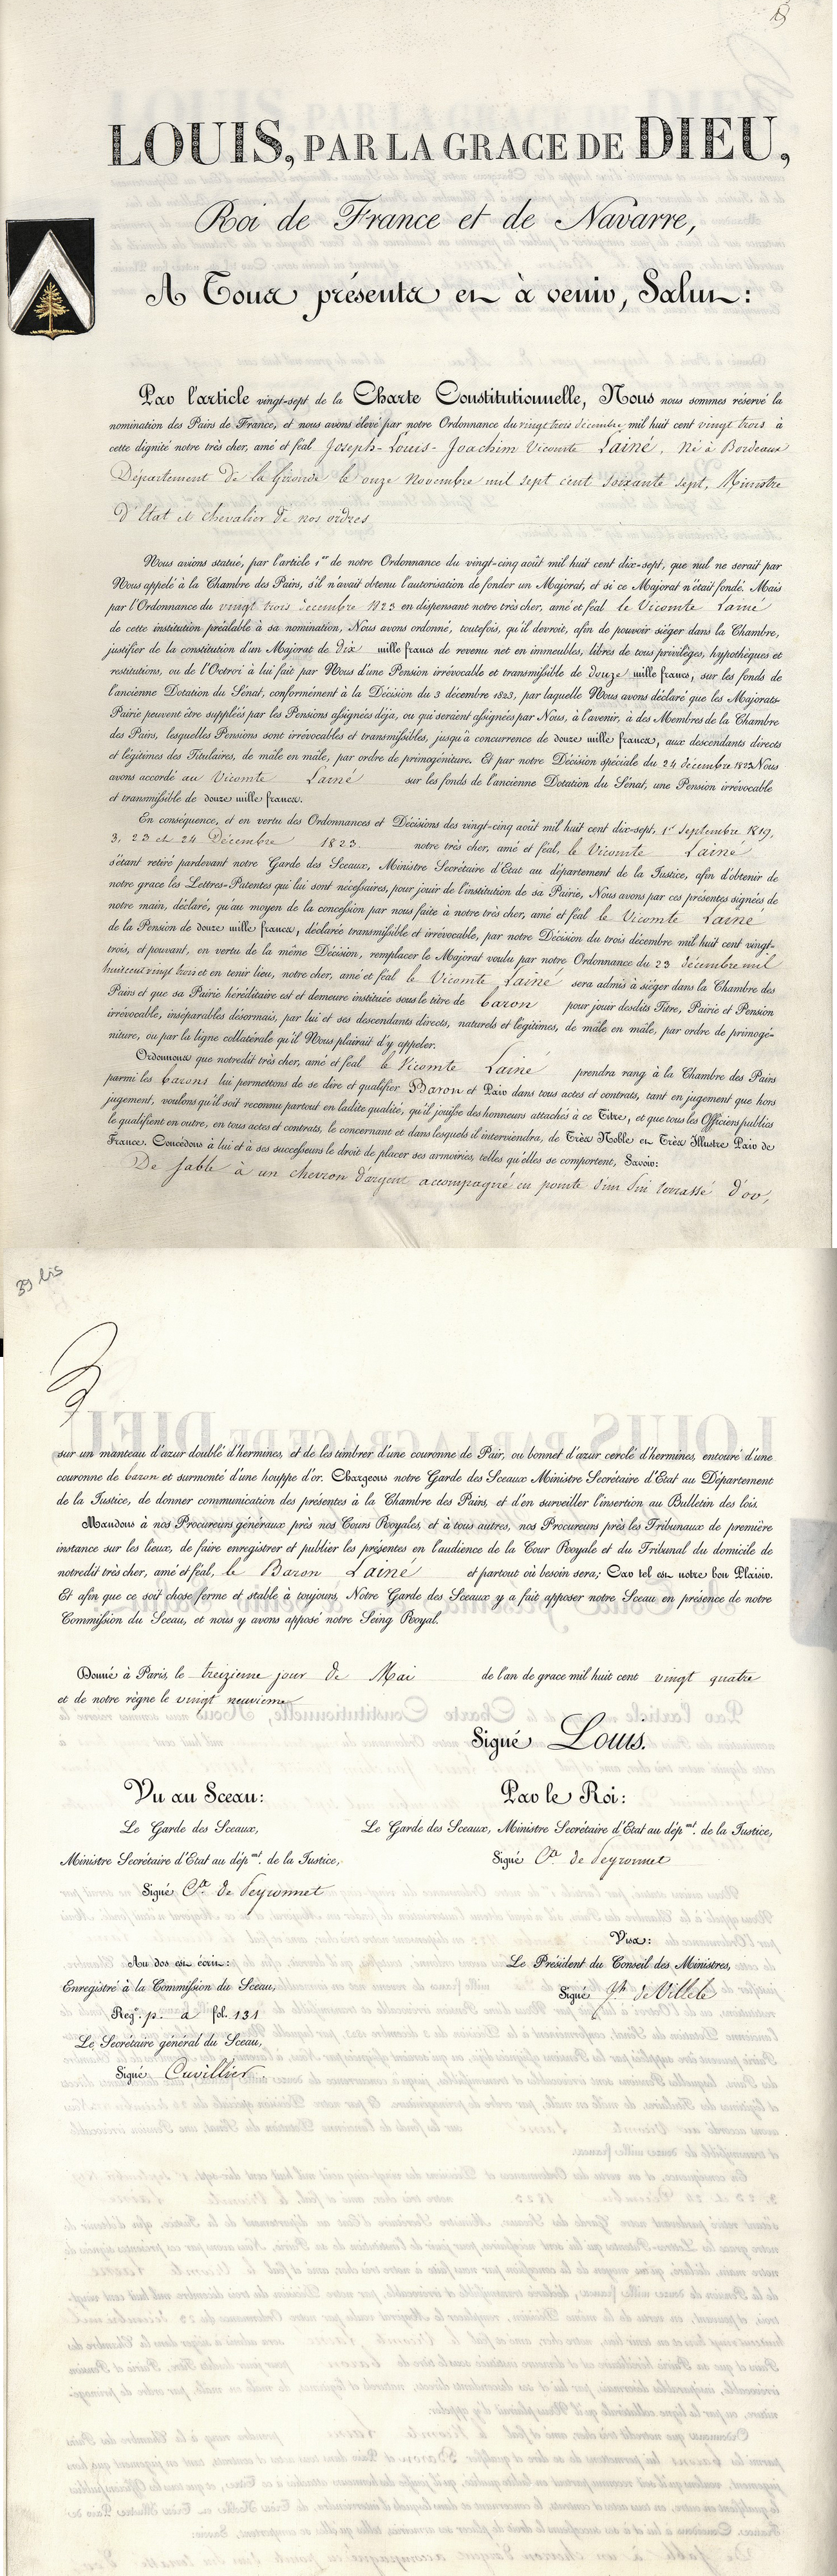 LOUIS, PAR LA GRACE DE DIEU,
Roi de France et de Navarre,
A Tous présents et à venir, Salut:
Par l'article vingt-sept de la Charte Constitutionnelle, Nous nous sommes réservé la
nomination des Pairs de France, et nous avons élevé par notre Ordonnance du vingt trois décembre mil huit cent vingt trois à
cette dignité notre très cher, amé et féal Joseph-Louis-Joachim Vicomte Lainé, Né à Bordeaux
Département de la Gironde le onze Novembre mil sept cent soixante sept, Ministre
D'Etat et Chevalier de nos ordres
Nous avions statué, par l'article 1er de notre Ordonnance du vingt-cinq août mil huit cent dix-sept, que nul ne serait par
Nous appelé à la Chambre des Pairs, s'il n'avait obtenu l'autorisation de fonder un Majorat, et si ce Majorat n'était fondé. Mais
par l'Ordonnance du vingt trois décembre 1823 en dispensant notre très cher, amé et féal le Vicomte Lainé
de cette institution préalable à sa nomination, Nous avons ordonné, toutefois, qu'il devroit, afin de pouvoir siéger dans la Chambre,
justifier de la constitution d'un Majorat de dix mille francs de revenu net en immeubles, libres de tous privilèges, hypothèques et
restitutions, ou de l'Octroi à lui fait par Nous d'une Pension irrévocable et transmissible de douze mille francs, sur les fonds de
l'ancienne Dotation du Sénat, conformément à la Décision du 3 décembre 1823, par laquelle Nous avons déclaré que les Majorats-
Pairie peuvent être suppléés par les Pensions assignées déja, ou qui seraient assignées par Nous, à l'avenir, à des Membres de la Chambre
des Pairs, lesquelles Pensions sont irrévocables et transmissibles, jusqu'à concurrence de douze mille francs, aux descendants directs
et légitimes des Titulaires, de mâle en mâle, par ordre de primogéniture. Et par notre Décision spéciale du 24 décembre 1823 Nous
avons accordé au Vicomte Lainé sur les fonds de l'ancienne Dotation du Sénat, une Pension irrévocable
et transmissible de douze mille francs.
En conséquence, et en vertu des Ordonnances et Décisions des vingt-cinq août mil huit cent dix-sept, 1er Septembre 1819,
3, 23 et 24 Décembre 1823 notre très cher, amé et féal, le Vicomte Lainé
s'étant retiré pardevant notre Garde des Sceaux, Ministre Secrétaire d'Etat au département de la Justice, afin d'obtenir de
notre grace les Lettres-Patentes qui lui sont nécessaires, pour jouir de l'institution de sa Pairie, Nous avons par ces présentes signées de
notre main, déclaré, qu'au moyen de la concession par nous faite à notre très cher, amé et féal le Vicomte Lainé
de la Pension de douze mille francs, déclarée transmissible et irrévocable, par notre Décision du trois décembre mil huit cent vingt-
trois, et pouvant, en vertu de la même Décision, remplacer le Majorat voulu par notre Ordonnance du 23 décembre mil
huit cent vingt trois et en tenir lieu, notre cher, amé et féal le Vicomte Lainé sera admis à siéger dans la Chambre des
Pairs et que sa Pairie héréditaire est et demeure instituée sous le titre de baron pour jouir desdits Titre, Pairie et Pension
irrévocable, inséparables désormais, par lui et ses descendants directs, naturels et légitimes, de mâle en mâle, par ordre de primogé-
niture, ou par la ligne collatérale qu'il Nous plairait d'y appeler.
Ordonnons que notredit très cher, amé et féal le Vicomte Lainé prendra rang à la Chambre des Pairs
parmi les barons lui permettons de se dire et qualifier Baron et Pair dans tous actes et contrats, tant en jugement que hors
jugement, voulons qu'il soit reconnu partout en ladite qualité, qu'il jouisse des honneurs attachés à ce Titre, et que tous les Officiers publics
le qualifient en outre, en tous actes et contrats, le concernant et dans lesquels il interviendra, de Très Noble et Très Illustre Pair de
France. Concédons à lui et à ses successeurs le droit de placer ses armoiries, telles qu'elles se comportent, Savoir:
De sable à un chevron d'argent accompagné en pointe d'un Pin terrassé d'or,
39 bis
sur un manteau d'azur doublé d'hermines, et de les timbrer d'une couronne de Pair, ou bonnet d'azur cerclé d'hermines, entouré d'une
couronne de baron et surmonté d'une houppe d'or. Chargeons notre Garde des Sceaux Ministre Secrétaire d'Etat au Département
de la Justice, de donner communication des présentes à la Chambre des Pairs, et d'en surveiller l'insertion au Bulletin des lois.
Mandons à nos Procureurs généraux près nos Cours Royales, et à tous autres, nos Procureurs près les Tribunaux de première
instance sur les lieux, de faire enregistrer et publier les présentes en l'audience de la Cour Royale et du Tribunal du domicile de
notredit très cher, amé et féal, le Baron Lainé et partout où besoin sera; Car tel est notre bon Plaisir.
Et afin que ce soit chose ferme et stable à toujours, Notre Garde des Sceaux y a fait apposer notre Sceau, en présence de notre
Commission du Sceau, et nous y avons apposé notre Seing Royal.
Donné à Paris, le treizieme jour de Mai de l'an de grace mil huit cent vingt quatre
et de notre règne le vingt neuvieme
Signé Louis.
Vu au Sceau: Par le Roi:
Le Garde des Sceaux, Le Garde des Sceaux, Ministre Secrétaire d'Etat au dépmt. de la Justice,
Ministre Secrétaire d'Etat au dépmt. de la Justice, Signé Cte. de Peyronnet
Signé Cte. de Peyronnet
Visa:
Au dos est écrit: Le Président du Conseil des Ministres,
Enregistré à la Commission du Sceau, Signé Jh de Villele
Regre. p. a fol. 131
Le Secrétaire général du Sceau,
Signé Cuvillier